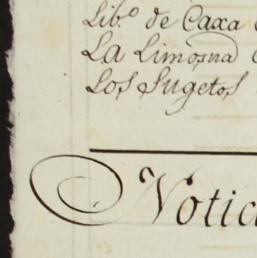 Lib.º de Caxa
La Limosna
Los Sugetos
Notic